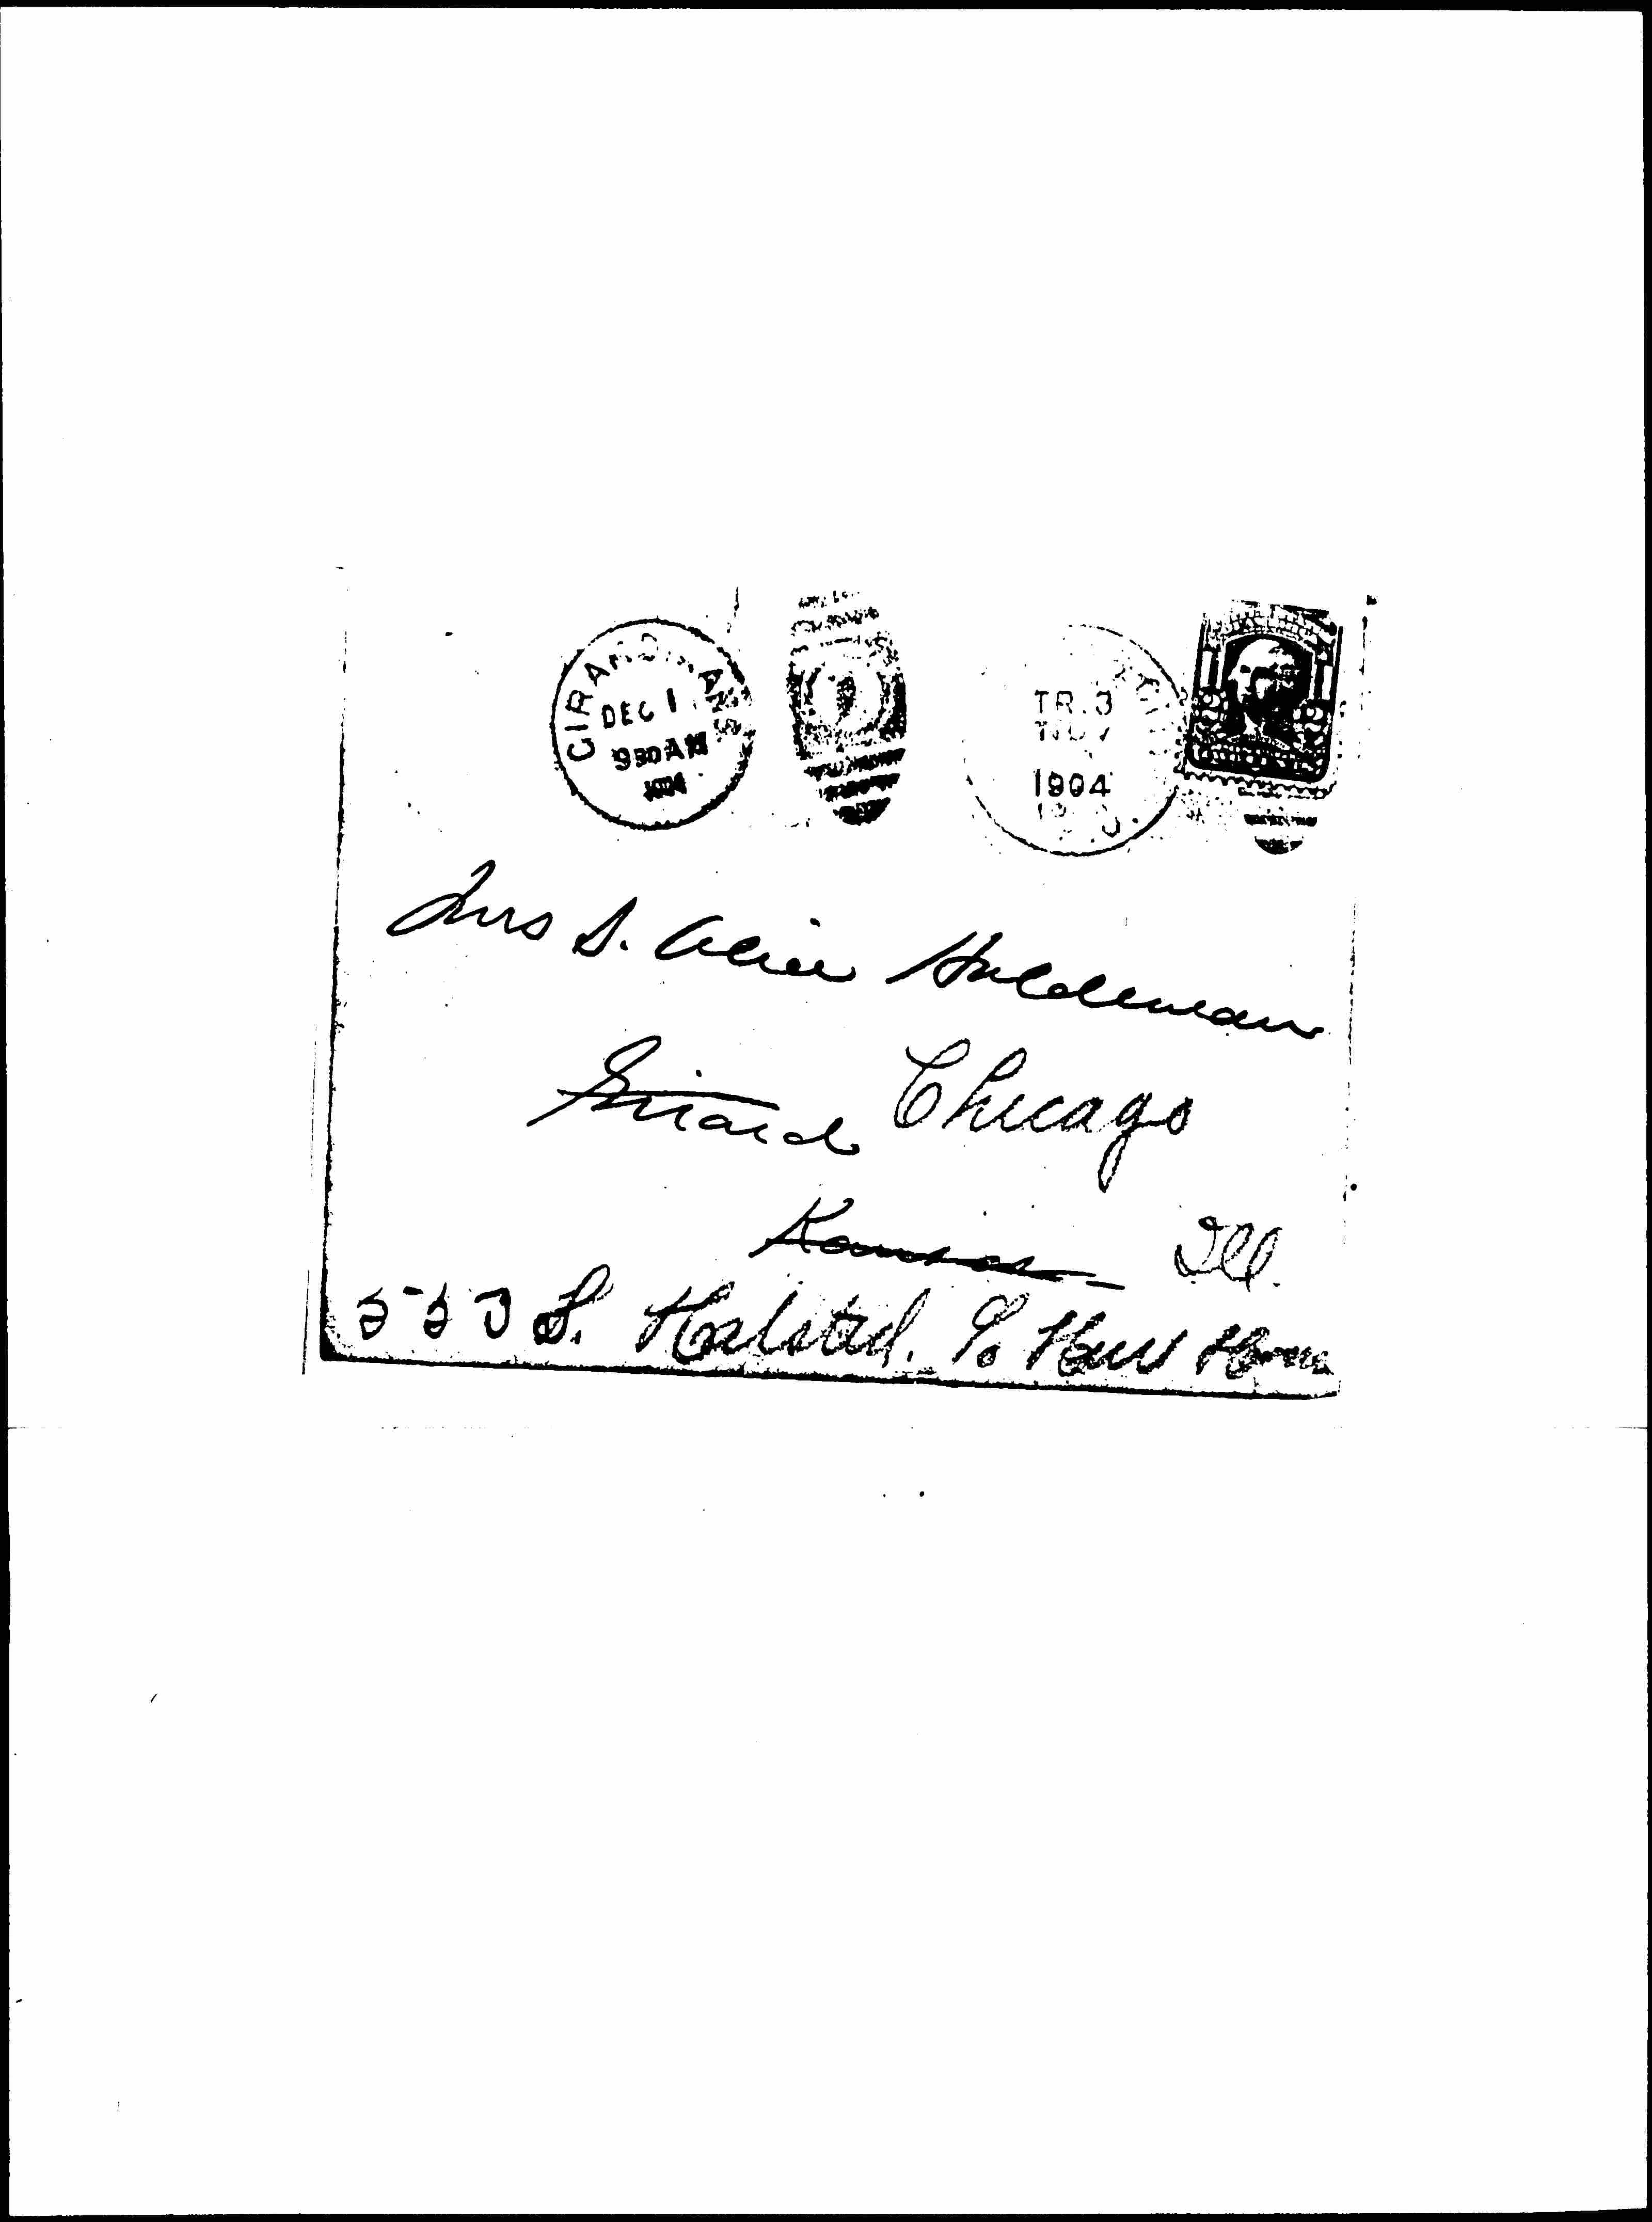 GIRARD KANS
DEC 1
930 AM
1904
TR. 3
NOV
1904
2 2
Mrs S. Alice Haldeman
Girard Chicago
Kansas Ill.
553 S. Halsted. % Hull House